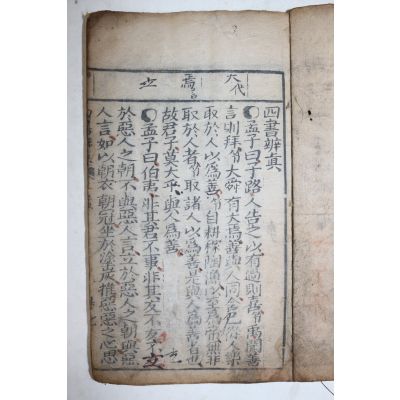 大代
四書辨眞
孟子曰子路人告之以有過則喜禹聞善
言則拜大舜有大焉善與人同舍己從人樂
取於人以爲善自耕稼陶漁以至爲帝無非
取於人者取諸人以爲善是與人爲善者也
故君子莫大乎與人爲善
孟子曰伯夷非其君不事非其友不友不立
於惡人之朝不與惡人言立於惡人之朝與惡
人言如以朝衣朝冠坐於塗炭推惡惡之心思